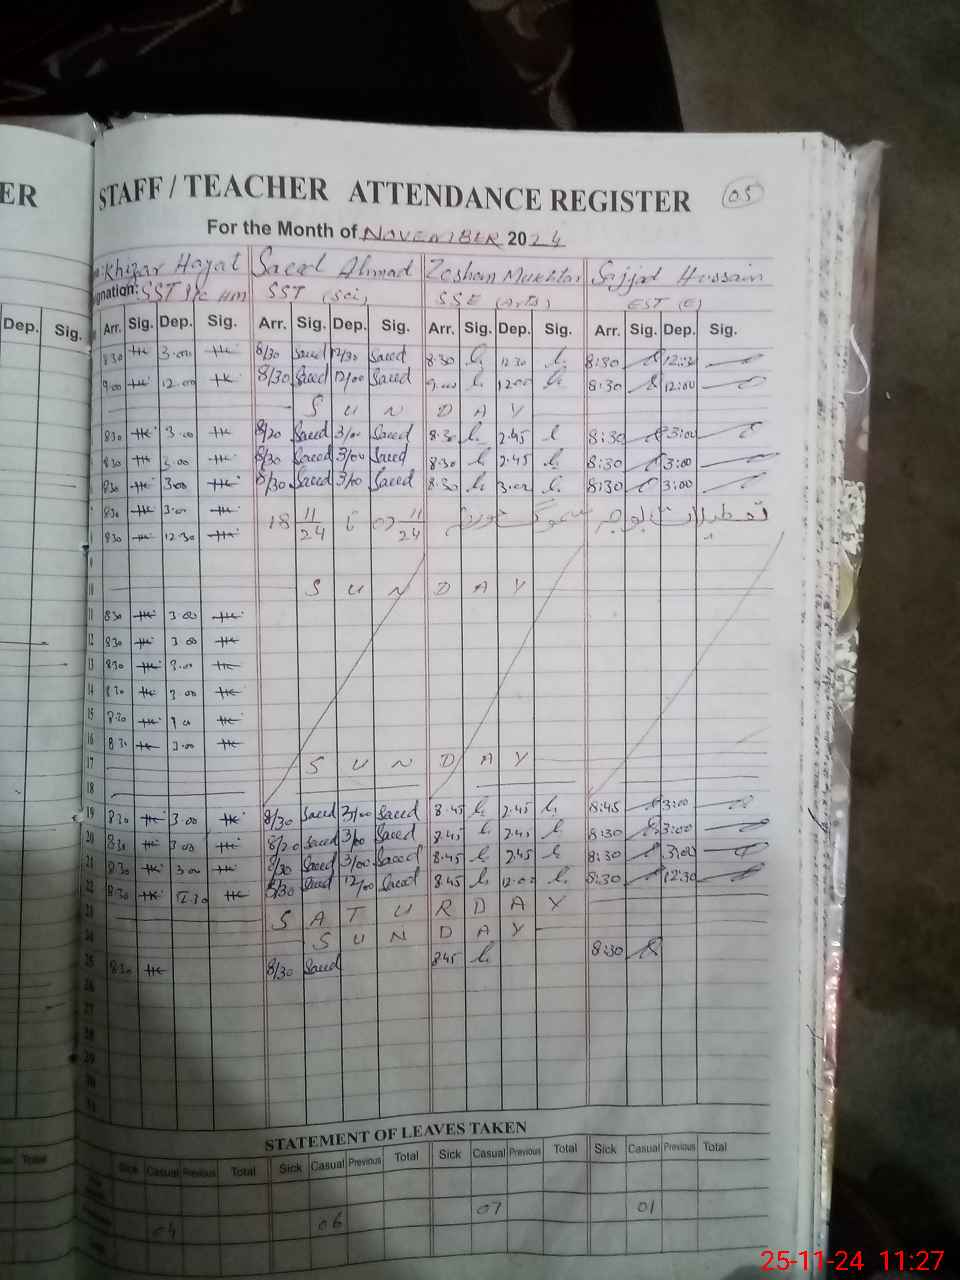 ER
STAFF / TEACHER ATTENDANCE REGISTER 05
For the Month of NOVEMBER 2024
Khizar Hayat Saeed Ahmad Zeshan Mukhtar Sajjad Hussain
gnation: SST I/C HM SST (Sci) SSE (Arts) EST (E)
Dep. Sig. Arr. Sig. Dep. Sig. Arr. Sig. Dep. Sig. Arr. Sig. Dep. Sig. Arr. Sig. Dep. Sig.
8:30 3:00 8/30 Saeed 12/30 Saeed 8.30 12.30 8:30 12:30
9:00 12:00 8/30 Saeed 12/00 Saeed 9.00 12.00 8:30 12:00
SUNDAY
830 3:00 8/30 Saeed 3/00 Saeed 8.30 2.45 8:30 3:00
830 3:00 8/30 Saeed 3/00 Saeed 8.30 2.45 8:30 3:00
830 3:00 8/30 Saeed 3/00 Saeed 8.30 3.00 8:30 3:00
830 3:00 تعطیلات بوجہ سموگ 07 11/24 تا 18 11/24
830 12:30
9
10 SUNDAY
11 830 3:00
12 830 3:00
13 830 3:00
14 830 3:00
15 830 3:00
16 830 3:00
17 SUNDAY
18
19 830 3:00 8/30 Saeed 3/00 Saeed 8.45 2.45 8:45 3:00
20 830 3:00 8/30 Saeed 3/00 Saeed 8.45 2.45 8:30 3:00
21 830 3:00 8/30 Saeed 3/00 Saeed 8.45 2.45 8:30 3:00
22 8:30 12:30 8/30 Saeed 12/00 Saeed 8.45 12.00 8:30 12:30
23 SATURDAY
24 SUNDAY
25 830 8/30 Saeed 845 8:30
26
27
28
29
30
31
STATEMENT OF LEAVES TAKEN
Total Sick Casual Previous Total Sick Casual Previous Total Sick Casual Previous Total Sick Casual Previous Total
04 06 07 01
25-11-24 11:27